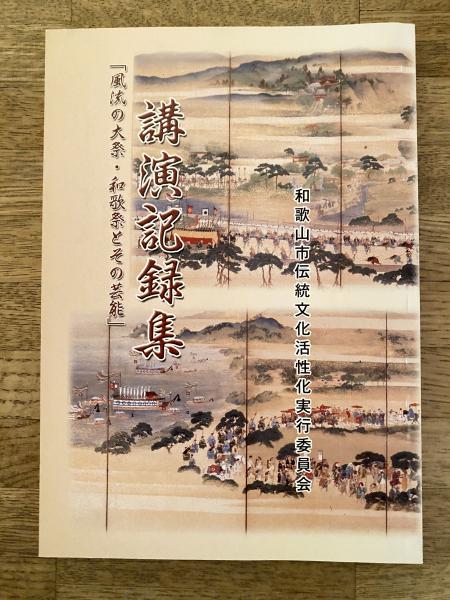 和歌山市伝統文化活性化実行委員会
講演記録集
『風流の大祭・和歌祭とその芸能』